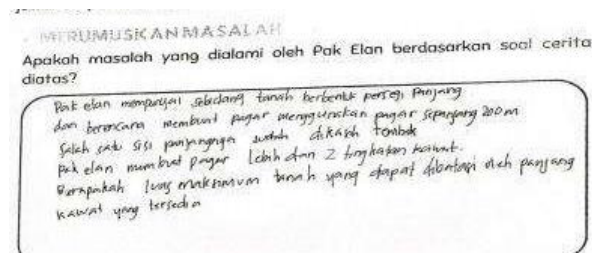 MERUMUSKAN MASALAH
Apakah masalah yang dialami oleh Pak Elan berdasarkan soal cerita
diatas?
Pak elan mempunyai sebidang tanah berbentuk persegi panjang
dan berencana membuat pagar menggunakan pagar sepanjang 200 m
Salah satu sisi panjangnya sudah dikasih tembok
pak elan membuat pagar lebih dan 2 tingkatan kawat.
Berapakah luas maksimum tanah yang dapat dibatasi oleh panjang
kawat yang tersedia